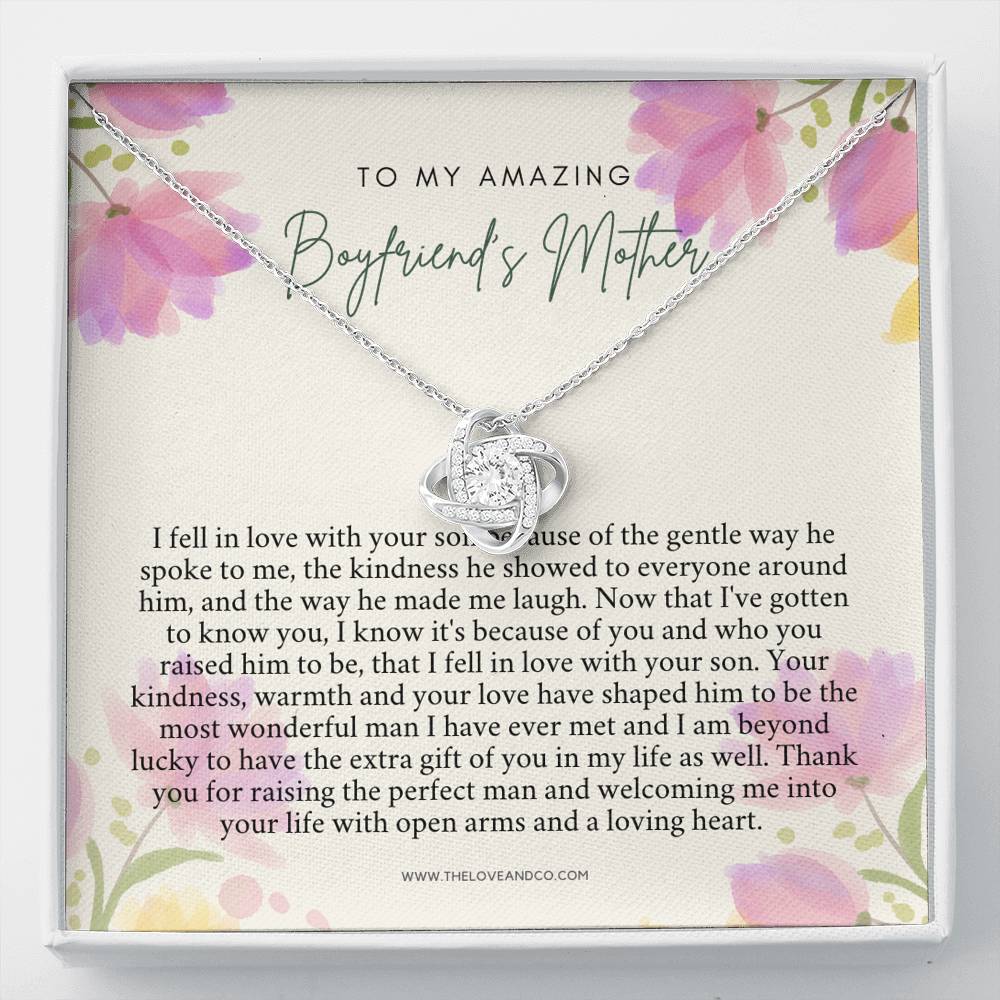 TO MY AMAZING
Boyfriend's Mother
I fell in love with your son because of the gentle way he
spoke to me, the kindness he showed to everyone around
him, and the way he made me laugh. Now that I've gotten
to know you, I know it's because of you and who you
raised him to be, that I fell in love with your son. Your
kindness, warmth and your love have shaped him to be the
most wonderful man I have ever met and I am beyond
lucky to have the extra gift of you in my life as well. Thank
you for raising the perfect man and welcoming me into
your life with open arms and a loving heart.
WWW.THELOVEANDCO.COM